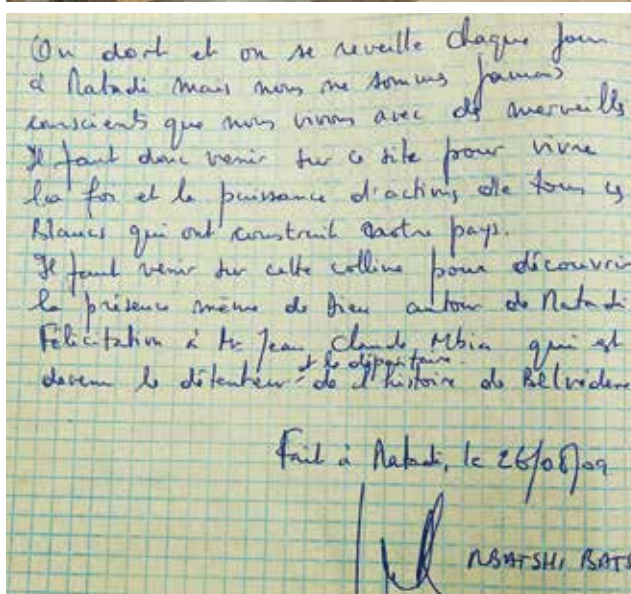 On dort et on se reveille chaque jour
à Matadi mais nous ne sommes jamais
conscients que nous vivons avec des merveilles
Il faut donc venir sur ce site pour vivre
la foi et la puissance d'actions de tous ces
Blancs qui ont construit notre pays.
Il faut venir sur cette colline pour découvrir
la présence même de Dieu autour de Matadi
Félicitation à Mr Jean Claude Mbia qui est
devenu le détenteur et le dépositaire de l'histoire de Belvédère
Fait à Matadi, le 26/08/09
MBATSHI BATS